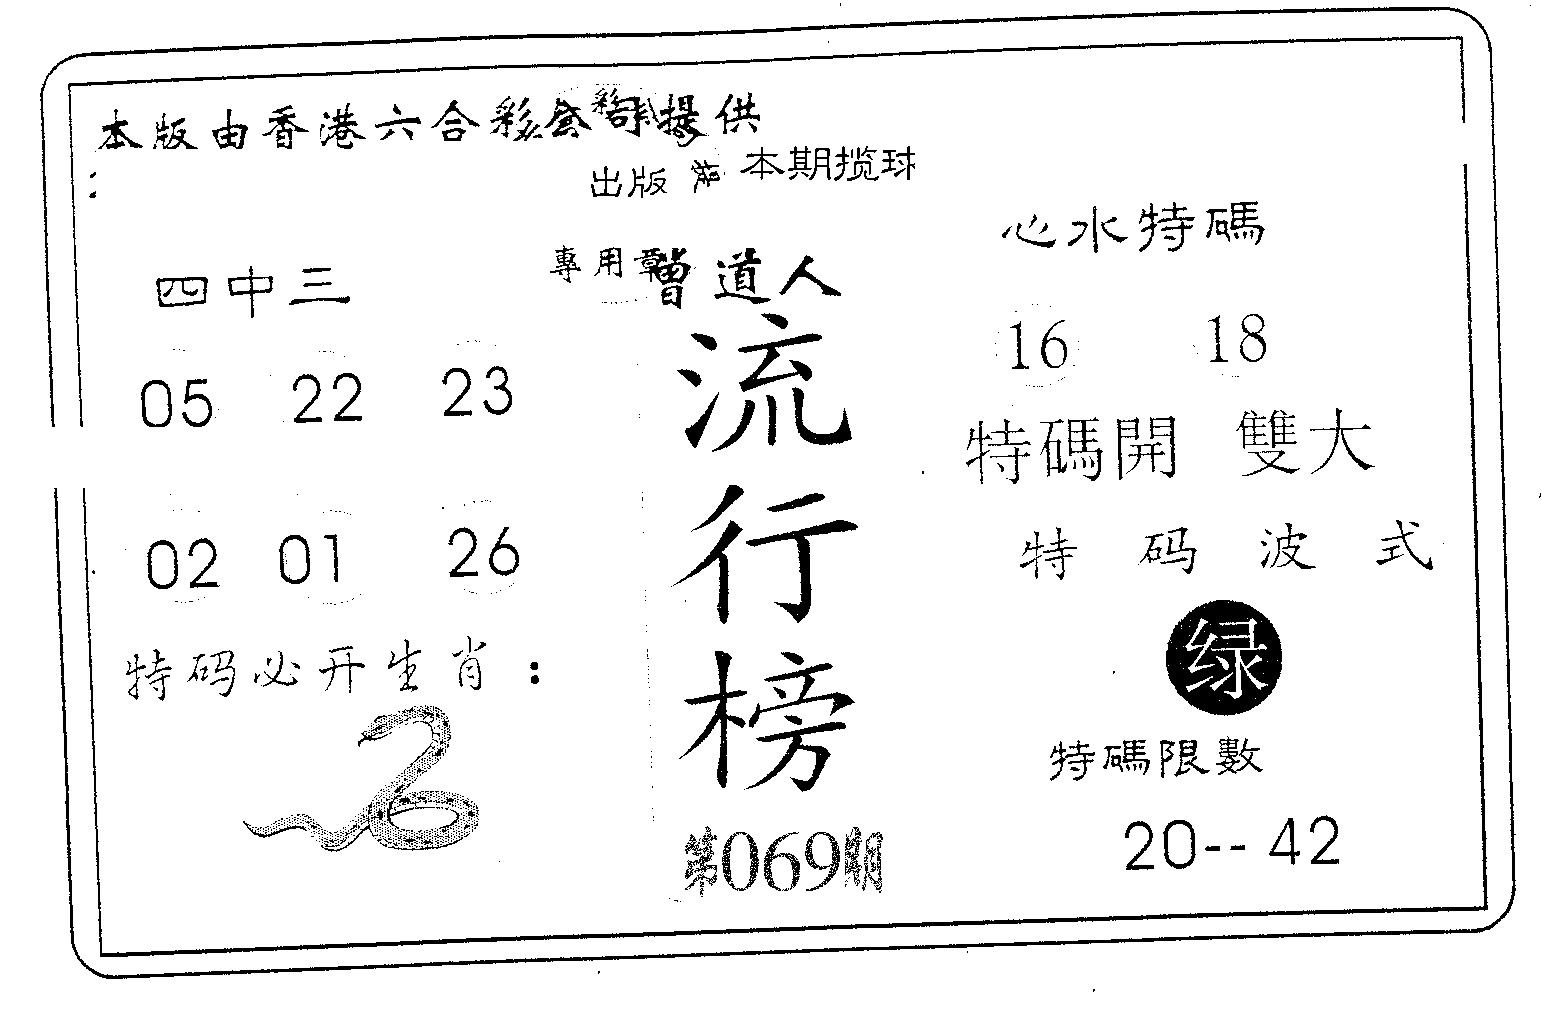 本版由香港六合彩公司提供
：
出版 本期揽球
專用章
曾道人
流行榜
第069期
四中三
05 22 23
02 01 26
特码必开生肖：
心水特碼
16 18
特碼開 雙大
特码波式
绿
特碼限數
20-- 42